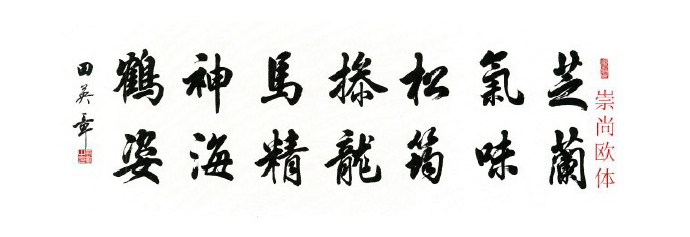 崇尚欧体
芝蘭
氣味
松筠
操龍
馬精
神海
鶴姿
田英章